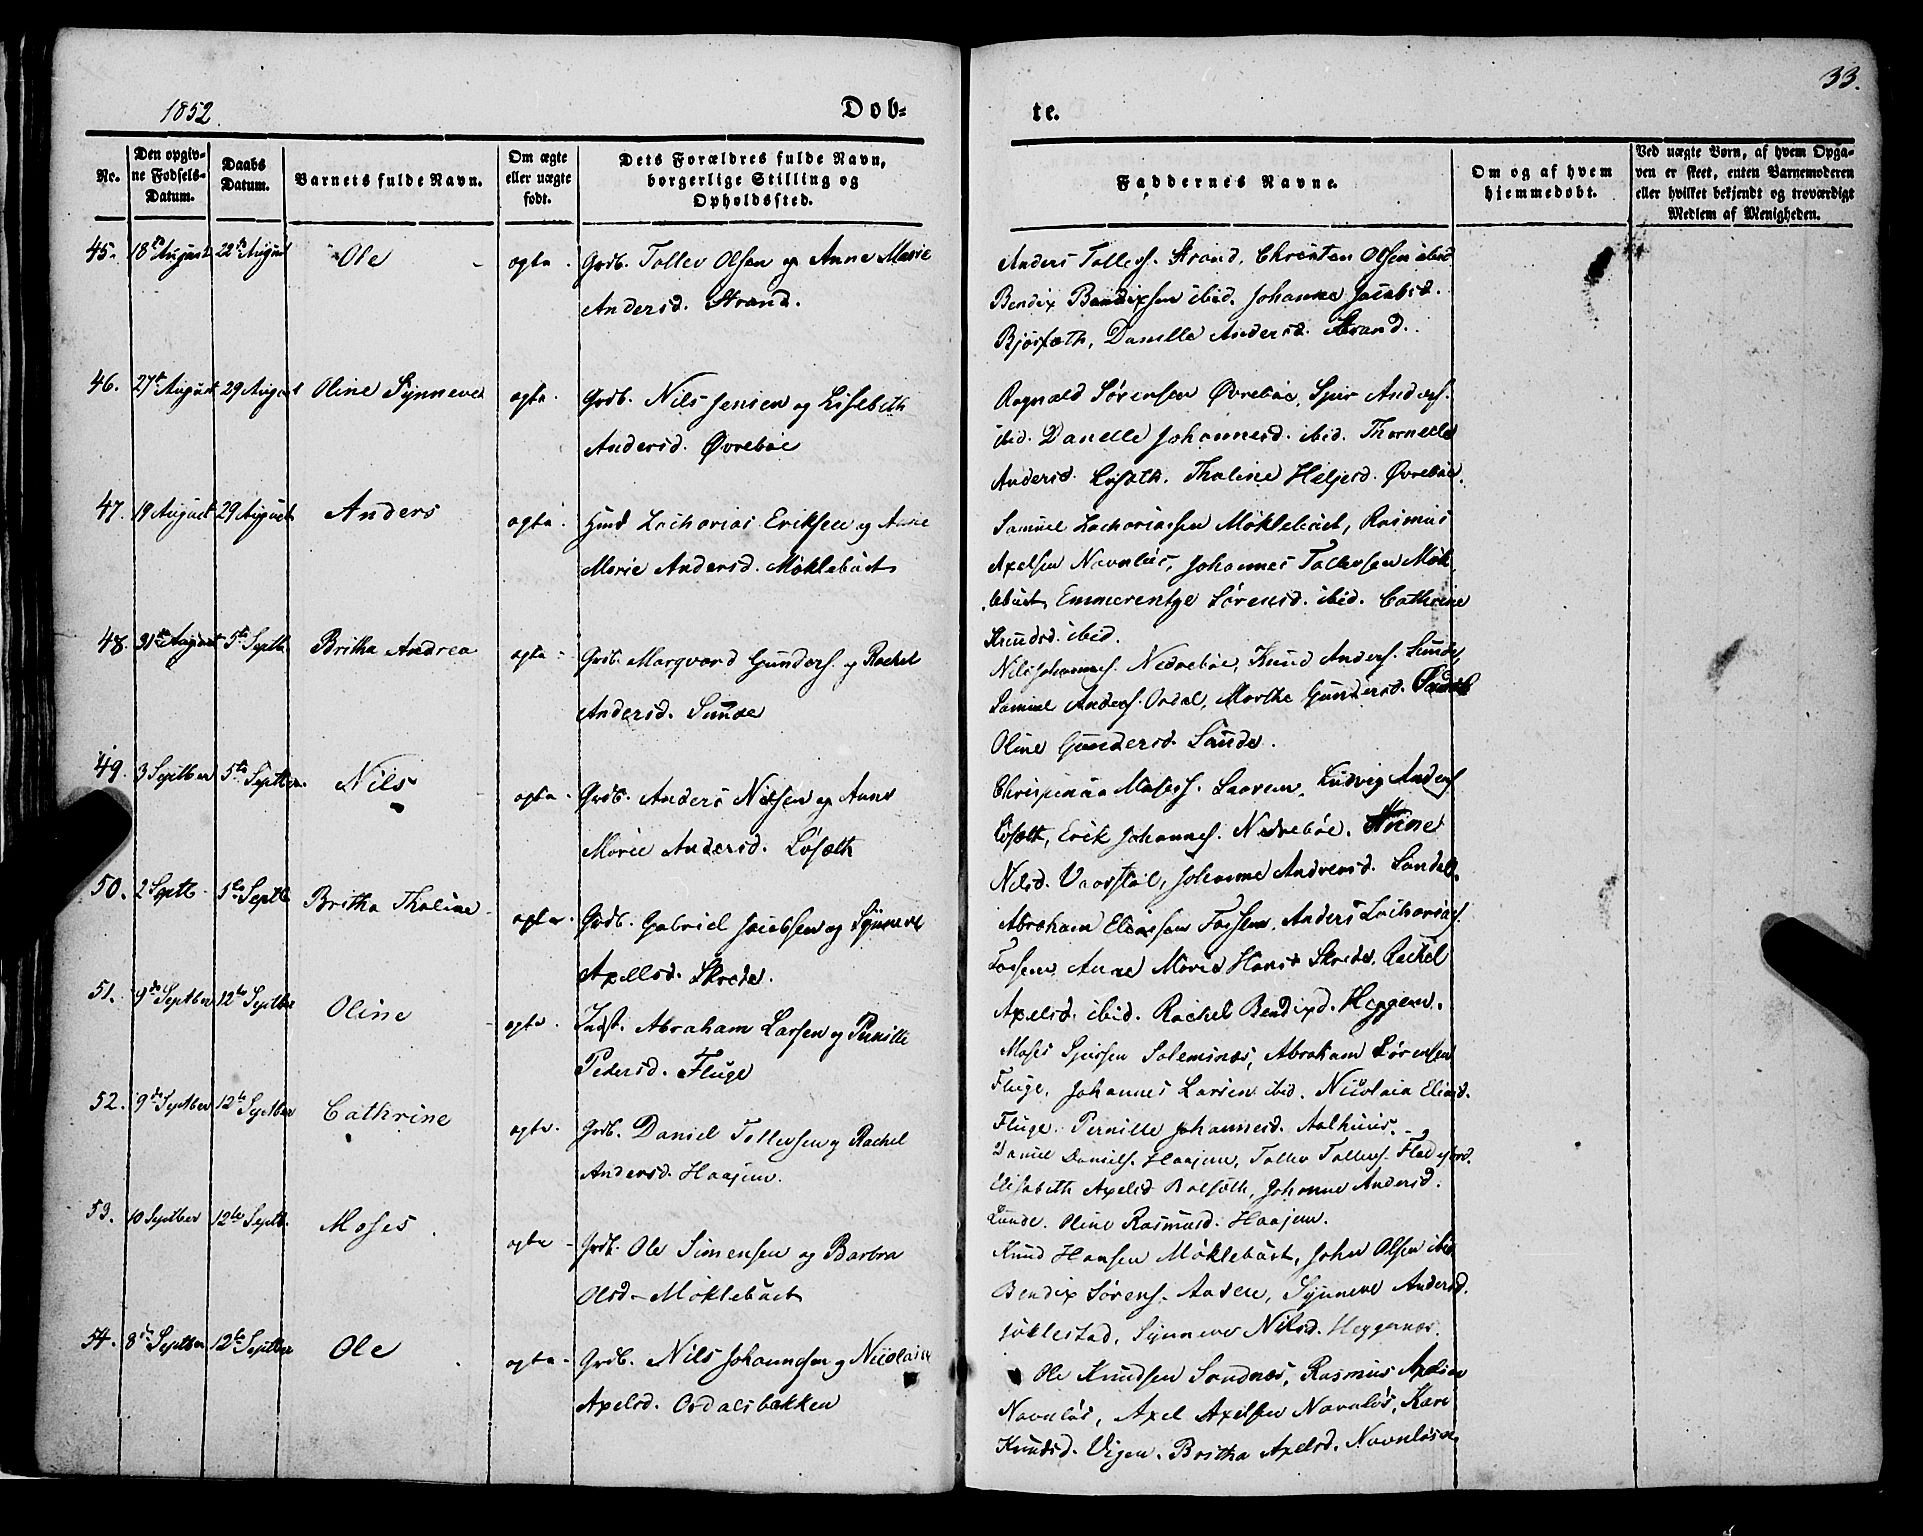 33.
1852.
Døb=
te.
No.
Den opgiv-
ne Fødsels-
Datum.
Daabs
Datum.
Barnets fulde Navn.
Om ægte
eller uægte
født.
Dets Forældres fulde Navn,
borgerlige Stilling og
Opholdssted.
Faddernes Navne.
Om og af hvem
hjemmedøbt.
Ved uægte Børn, af hvem Opga-
ven er skeet, enten Barnemoderen
eller hvilket bekjendt og troværdigt
Medlem af Menigheden.
45. 18de August 22de August Ole ægte. Grdb. Tollev Olsen og Anne Marie
Andersd. Strand.
Anders Tollefs. Strand, Christen Olsen ibid
Bendix Bendixsen ibid. Johanne Jacobsd.
Andersd. Strand.
46. 27de August 29 August Oline Synneve ægte. Grdb. Nils Jensen og Lisebeth
Andersd. Øvrebøe
Ragnald Sørensen Øvrebøe, Anders.
ibid. Danelle Johannesd. ibid.
Andersd. Løsæth. Thaline Heljesd. Øvrebøe.
47. 19 August 29 August Anders ægte. Huusmd Zacharias Eriksen og Anne
Marie Andersd. Møklebust
Samuel Zachariassen Møklebust, Rasmus
Axelsen Navnløs, Johannes Tollevsen Møk
lebust, Emmerentze Sørensd. ibid. Cathrine
Knudsd. ibid.
48. 31te August 5te Septb. Britha Andrea ægte. Grdb. Marqvard Gunders. og Rachel
Andersd. Sunde
Nils Johannes. Nedrebøe, Knud Anders. Sunde,
Samuel Anders. Osdal, Marthe Gundersd. Sunde
Oline Gundersd. Sunde.
49. 3 Septber 5te Septber. Nils ægte. Grdb. Anders Nilsen og Anne
Marie Andersd. Løsæth
Moses. Ludvig Anders
Løsæth, Erik Johannes. Nedrebøe. Anne
Nilsd. Vaarstøl, Johanne Andreasd. Sandal.
50. 2 Septb. 5te Septb Britha Thaline ægte. Grdb. Gabriel Jacobsen og Synneve
Axelsd. Skrede.
Abraham Eliassen Fossem, Anders Zacharias.
Fossem, Anne Marie Hansd Skrede, Rachel
Axelsd. ibid. Rachel Bendixd. Heggem.
51. 9de Septber 12te Septber Oline ægte. Indst. Abraham Larsen og Pernille
Pedersd. Fluge
Moses Solemsnæs, Abraham Sørensen
Fluge, Johannes Larsen ibid. Nicolaia Eliasd.
Fluge. Pernille Johannesd. Aalhuus.
52. 9de Septber 12te Septber Cathrine ægte. Grdb. Daniel Tollevsen og Rachel
Andersd. Haajem.
Daniel Daniels. Haajem, Tollev Tollevs.
Elisabeth Axelsd Bolsæth, Johanne Andersd.
Lunde. Oline Rasmusd. Haajem.
53. 10 Septber 12te Septb. Moses ægte Grdb. Ole Simensen og Barbra
Olsd Møklebust
Knud Hansen Møklebust, John Olsen ibid
Bendix Sørens. Aasen, Synneve Andersd.
Jøklestad, Synneve Nilsd. Heggenæs.
54. 8de Septber 12te Septber Ole ægte Grdb. Nils Johannesen og Nicolaia
Axelsd. Osdalsbakken
Ole Knudsen Sandnæs, Rasmus Axelsen
Navnløs, Axel Axelsen Navnløs, Kari
Knudsd. Vigen. Britha Axelsd. Navnløsen